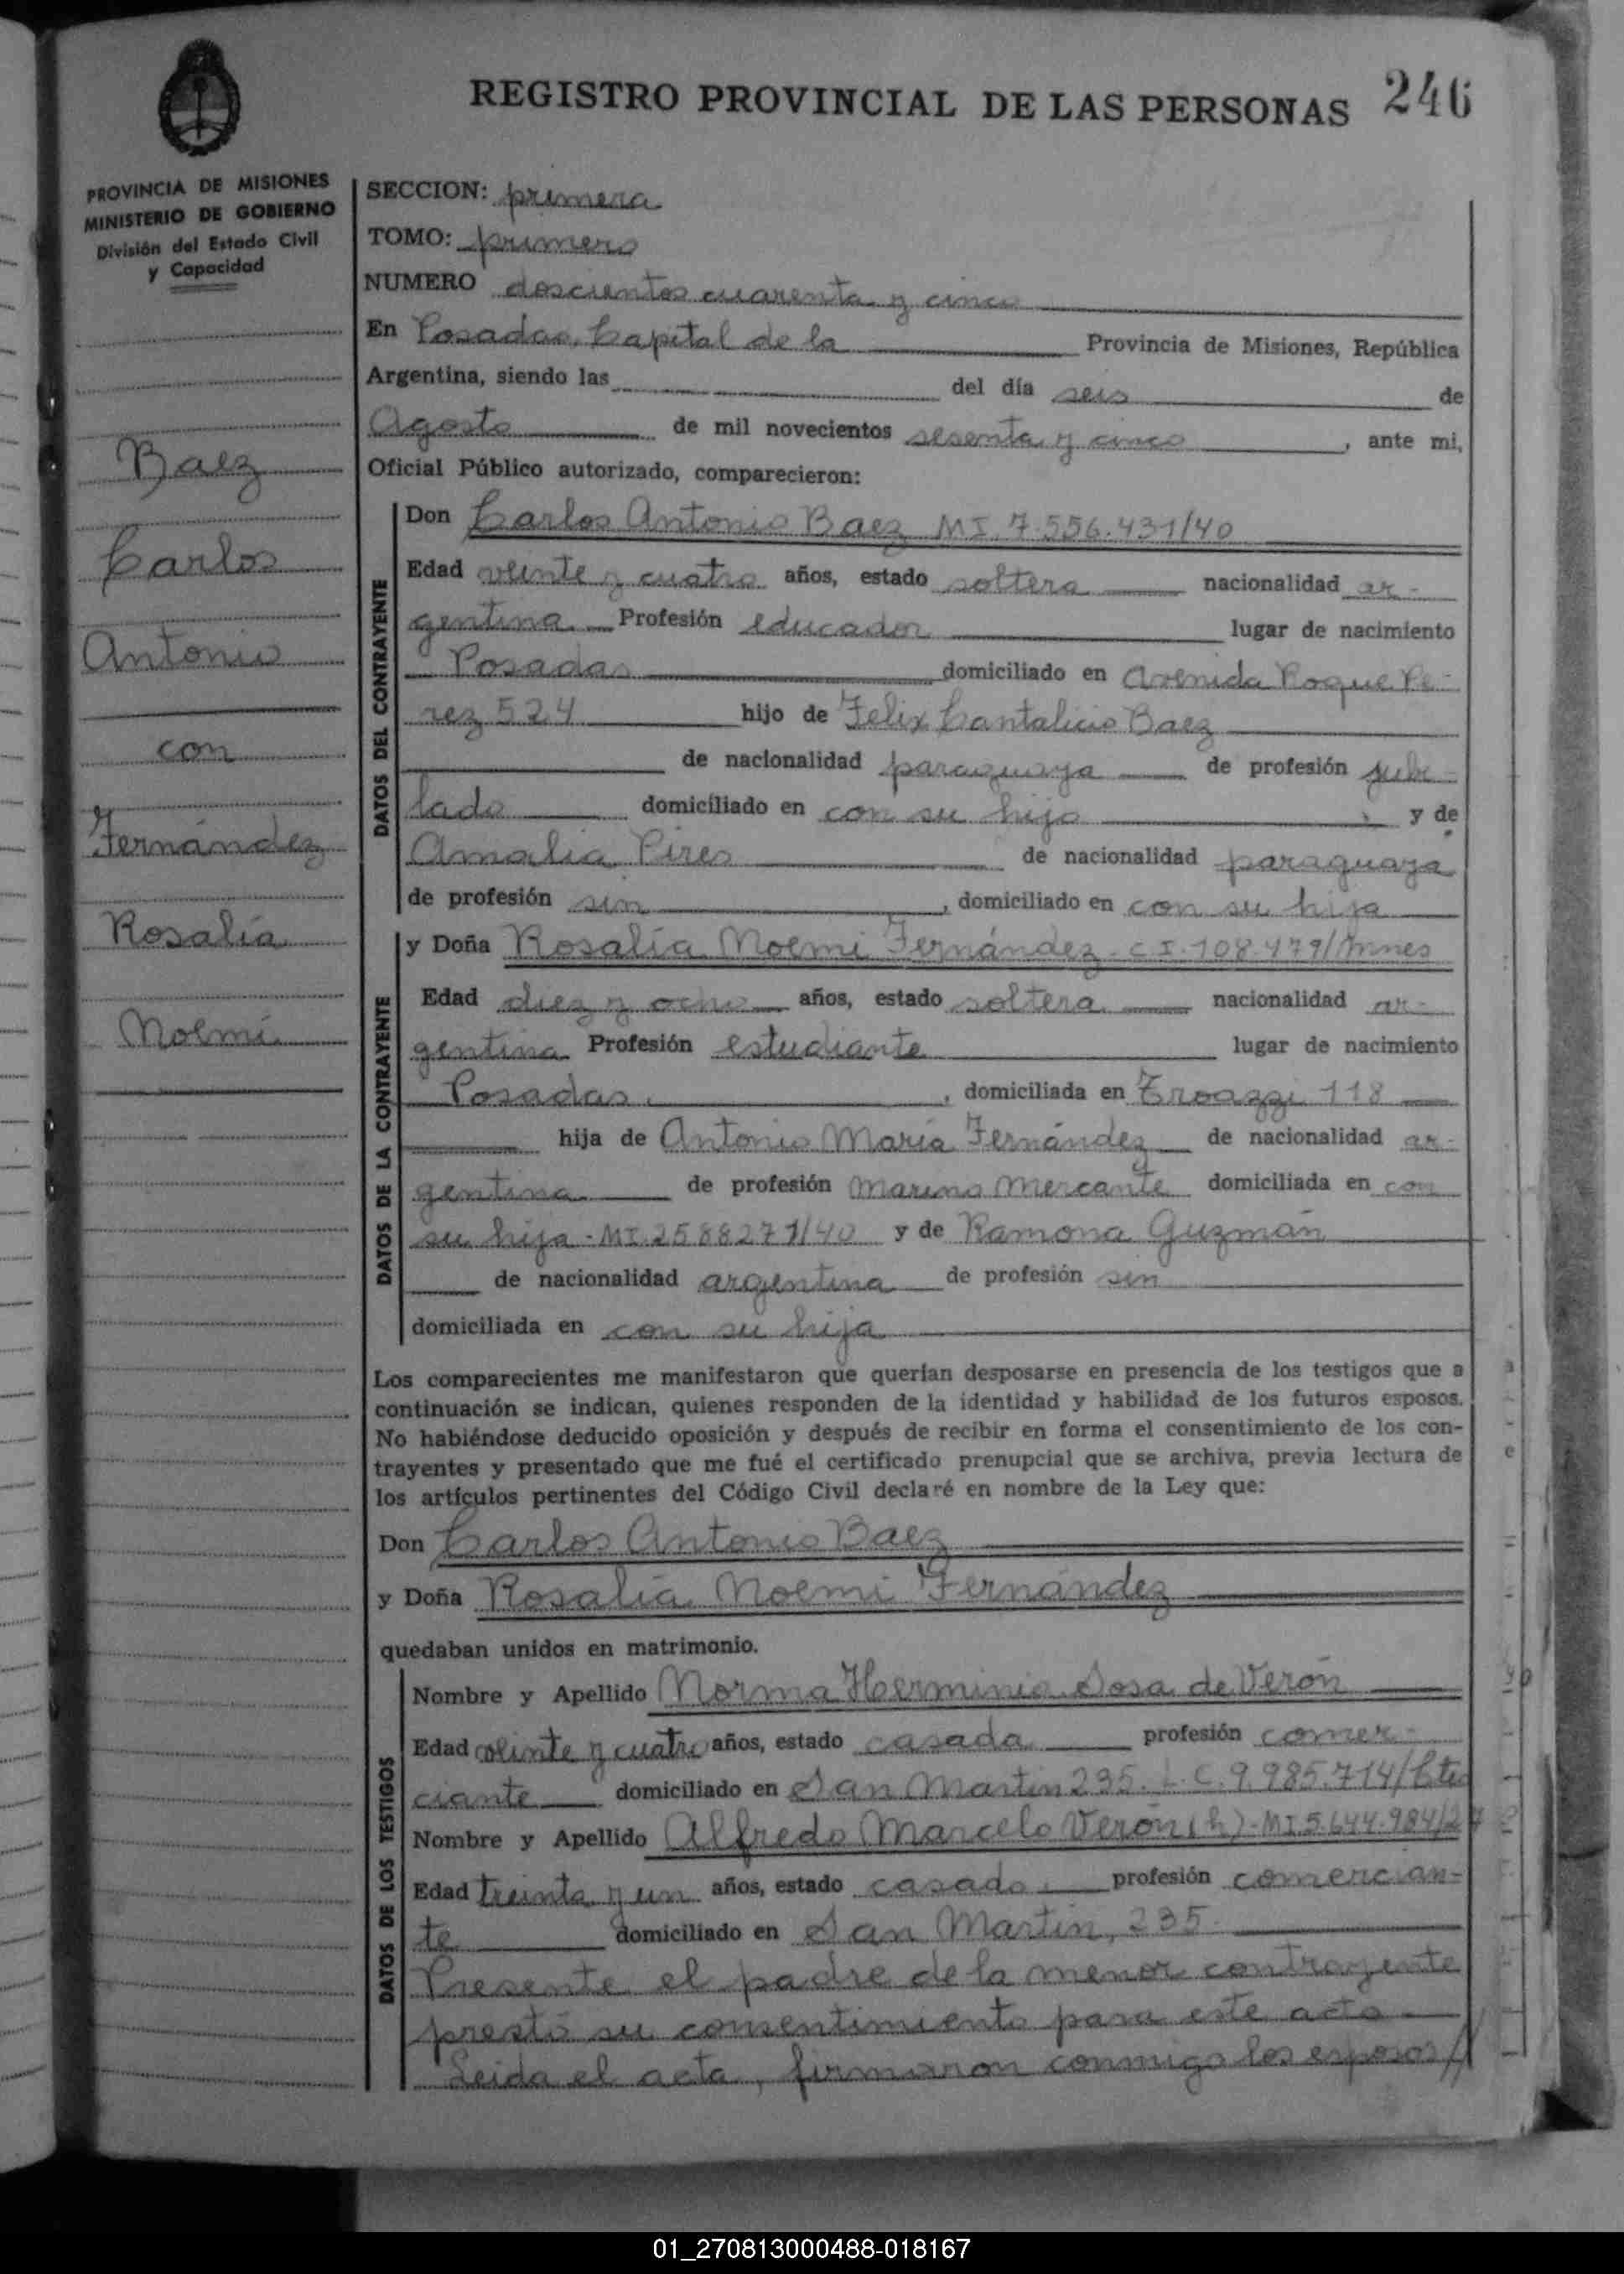 REGISTRO PROVINCIAL DE LAS PERSONAS 246
PROVINCIA DE MISIONES
MINISTERIO DE GOBIERNO
División del Estado Civil
y Capacidad
Baez
Carlos
Antonio
con
Fernández
Rosalía
Noemí
SECCION: primera
TOMO: primero
NUMERO doscientos cuarenta y cinco
En Posadas, Capital de la Provincia de Misiones, República
Argentina, siendo las del día seis de
Agosto de mil novecientos sesenta y cinco, ante mi,
Oficial Público autorizado, comparecieron:
DATOS DEL CONTRAYENTE
Don Carlos Antonio Baez MI. 7.556.431/40
Edad veinte y cuatro años, estado soltero nacionalidad ar-
gentina Profesión educador lugar de nacimiento
Posadas domiciliado en Avenida Roque Pe-
rez 524 hijo de Felix Cantalicio Baez
de nacionalidad paraguaya de profesión jubi-
lado domiciliado en con su hijo, y de
Amalia Pires de nacionalidad paraguaya
de profesión sin, domiciliado en con su hija
DATOS DE LA CONTRAYENTE
y Doña Rosalía Noemí Fernández - C.I. 108.479/Mnes
Edad diez y ocho años, estado soltera nacionalidad ar-
gentina Profesión estudiante lugar de nacimiento
Posadas, domiciliada en Troazzi 118
hija de Antonio María Fernández de nacionalidad ar-
gentina de profesión marino mercante domiciliada en con
su hija - MI. 2588271/40 y de Ramona Guzmán
de nacionalidad argentina de profesión sin
domiciliada en con su hija
Los comparecientes me manifestaron que querían desposarse en presencia de los testigos que a
continuación se indican, quienes responden de la identidad y habilidad de los futuros esposos.
No habiéndose deducido oposición y después de recibir en forma el consentimiento de los con-
trayentes y presentado que me fué el certificado prenupcial que se archiva, previa lectura de
los artículos pertinentes del Código Civil declaré en nombre de la Ley que:
Don Carlos Antonio Baez
y Doña Rosalía Noemí Fernández
quedaban unidos en matrimonio.
DATOS DE LOS TESTIGOS
Nombre y Apellido Norma Herminia Sosa de Verón
Edad veinte y cuatro años, estado casada profesión comer-
ciante domiciliado en San Martin 235. L.C. 9.985.714/Ctes
Nombre y Apellido Alfredo Marcelo Verón (h) - MI. 5.644.984/27
Edad treinta y un años, estado casado profesión comercian-
te domiciliado en San Martin, 235.
Presente el padre de la menor contrayente
prestó su consentimiento para este acto
Leida el acta, firmaron conmigo los esposos//
01_270813000488-018167